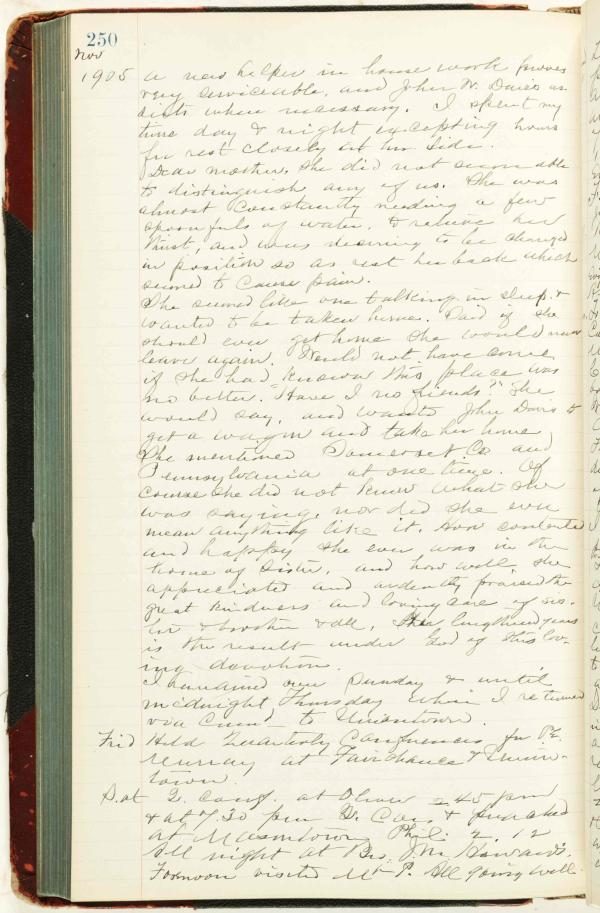 250
Nov
1905 a new helper in house work proves
very serviceable, and John W. Davis as-
sists when necessary. I spent my
time day & night excepting hours
for rest closely at her side.
Dear mother, she did not seem able
to distinguish any of us. She was
almost constantly needing a few
spoonfuls of water, to relieve her
thirst, and was desiring to be changed
in position so as rest her back which
seemed to cause pain.
She seemed like one talking in sleep &
wanted to be taken home. Said if she
should ever get home she would never
leave again. Would not have come
if she had known this place was
no better. "Have I no friends?" She
would say, and wants John Davis to
get a wagon and take her home
She mentioned Somerset Co and
Pennsylvania at one time. Of
course she did not know what she
was saying, nor did she ever
mean anything like it. How contented
and happy she ever was in the
home of Sister, and how well she
appreciated and ardently praised the
great kindness and loving care of sis-
ter & brother & all. Her lengthened years
is the result under God of this lov-
ing devotion.
I remained over Sunday & until
midnight Thursday when I returned
via Cumb. to Uniontown.
Frid Held Quarterly Conferences for P.E.
Murray at Fairchance & Union-
town.
Sat Q. Conf. at Oliver 2 45 pm
& at 7.30 pm Q. Con. & preached
at Masontown Phil. 2. 12
All night at Bro. J.M. Howard's.
Forenoon visited Mt P. All going well